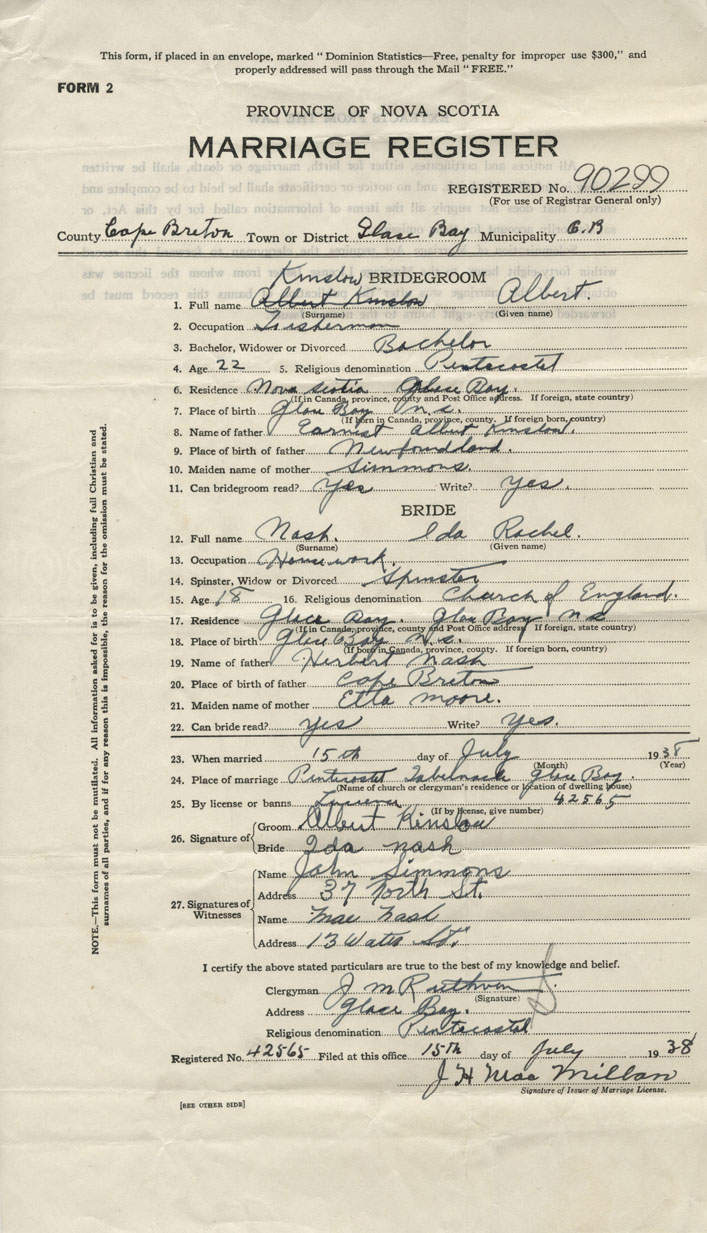 This form, if placed in an envelope, marked "Dominion Statistics—Free, penalty for improper use $300," and
properly addressed will pass through the Mail "FREE."
FORM 2
PROVINCE OF NOVA SCOTIA
MARRIAGE REGISTER
REGISTERED No. 90299
(For use of Registrar General only)
County Cape Breton Town or District Glace Bay Municipality C.B
BRIDEGROOM
Kinslow
1. Full name Albert Kinslow Albert.
(Surname) (Given name)
2. Occupation Fisherman
3. Bachelor, Widower or Divorced Bachelor
4. Age 22 5. Religious denomination Pentacostel
6. Residence Nova Scotia Glace Bay.
(If in Canada, province, county and Post Office address. If foreign, state country)
7. Place of birth Glace Bay N.S.
(If born in Canada, province, county. If foreign born, country)
8. Name of father Earnist Albert Kinslow.
9. Place of birth of father Newfoundland.
10. Maiden name of mother Simmons.
11. Can bridegroom read? Yes Write? Yes.
BRIDE
12. Full name Nash. Ida Rachel.
(Surname) (Given name)
13. Occupation Housework.
14. Spinster, Widow or Divorced Spinster
15. Age 18 16. Religious denomination Church of England.
17. Residence Glace Bay. Glace Bay N.S
(If in Canada, province, county and Post Office address If foreign, state country)
18. Place of birth Glace Bay N.S.
(If born in Canada, province, county. If foreign born, country)
19. Name of father Herbert Nash
20. Place of birth of father Cape Breton
21. Maiden name of mother Etta Moore.
22. Can bride read? Yes Write? Yes.
23. When married 15th day of July 1938
(Month) (Year)
24. Place of marriage Pentacostel Tabernacle Glace Bay.
(Name of church or clergyman's residence or location of dwelling house)
25. By license or banns 42565
(If by license, give number)
26. Signature of Groom Albert Kinslow
Bride Ida Nash
27. Signatures of Witnesses
Name John Simmons
Address 37 North St.
Name Mae Nash
Address 13 Water St.
I certify the above stated particulars are true to the best of my knowledge and belief.
Clergyman J M Ruthven
(Signature)
Address Glace Bay.
Religious denomination Pentacostal
Registered No. 42565 Filed at this office 15th day of July 1938
J H MacMillan
Signature of Issuer of Marriage License.
[SEE OTHER SIDE]
NOTE.—This form must not be mutilated. All information asked for is to be given, including full Christian and
surnames of all parties, and if for any reason this is impossible, the reason for the omission must be stated.